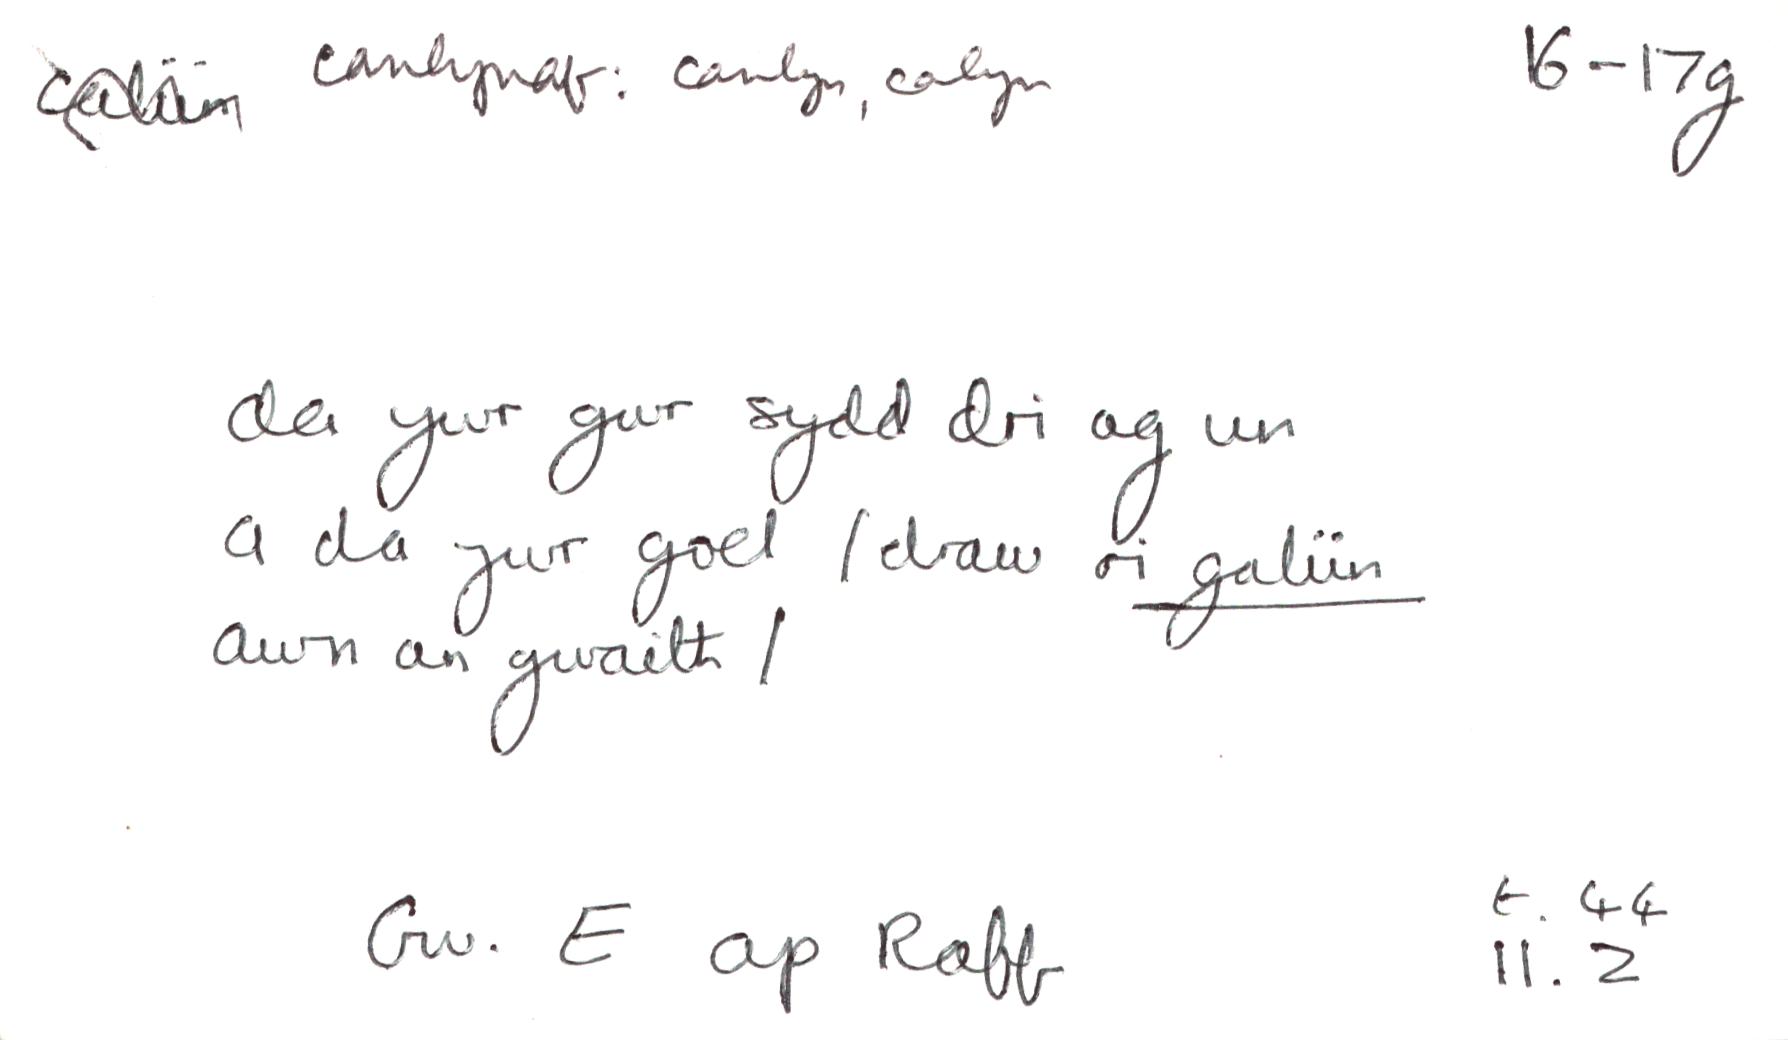 caliün canlynaf: canlyn, calyn 16-17g
da ywr gwr sydd dri ag un
a da ywr goel / draw oi galiün
awn an gwaith /
Gw. E ap Raff t. 44
ll. 2